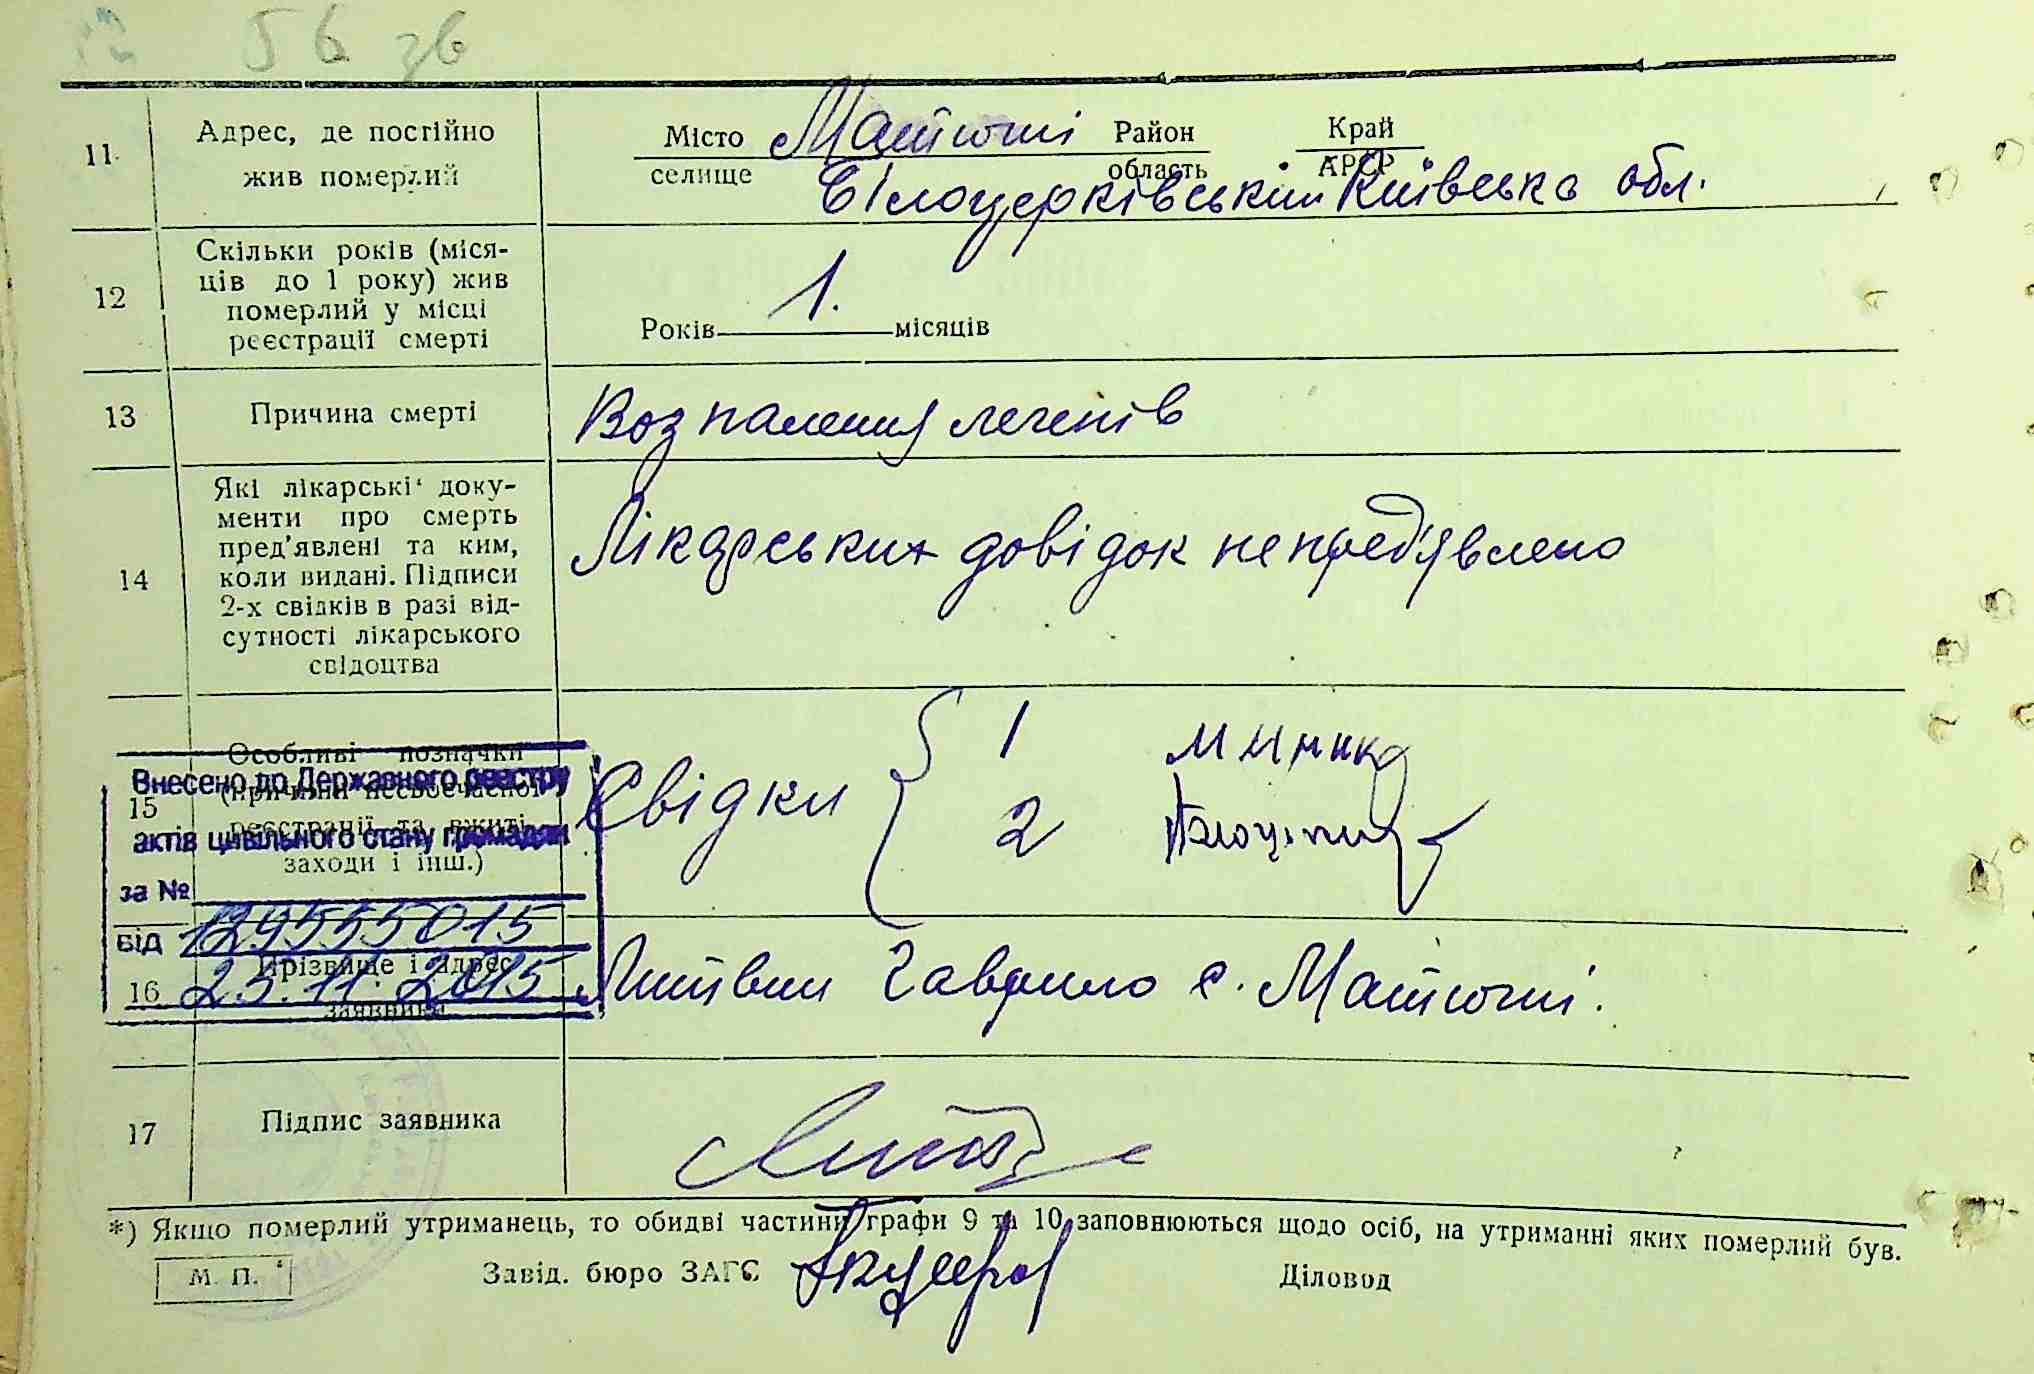 56 зв
11
Адрес, де постійно
жив померлий
Місто Матюші Район Край
селище область АРСР
Білоцерківський Київська обл.
12
Скільки років (міся-
ців до 1 року) жив
померлий у місці
реєстрації смерті
1.
Років місяців
13
Причина смерті
Возпаления легенів
14
Які лікарські доку-
менти про смерть
пред’явлені та ким,
коли видані. Підписи
2-х свідків в разі від-
сутності лікарського
свідоцтва
Лікарських довідок непред'явлено
15
Особливі позначки
(причини несвоєчасної
реєстрації та вжиті
заходи і інш.)
Свідки
1
2
Внесено до Державного реєстру
актів цивільного стану громадян
за №
129555015
від 25.11.2015
16
Прізвище і адрес
заявника
Литвин Гаврило с. Матюші.
17
Підпис заявника
*) Якщо померлий утриманець, то обидві частини графи 9 та 10 заповнюються щодо осіб, на утриманні яких померлий був.
М. П.
Завід. бюро ЗАГС
Діловод